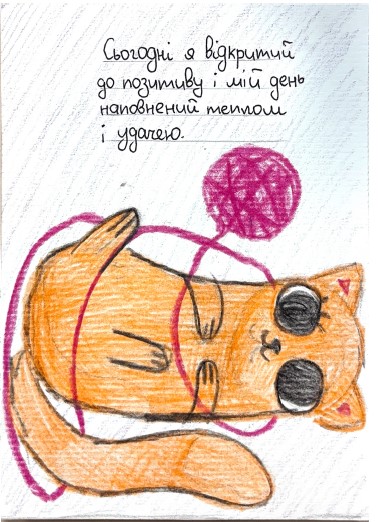 Сьогодні я відкритий
до позитиву і мій день
наповнений теплом
і удачею.